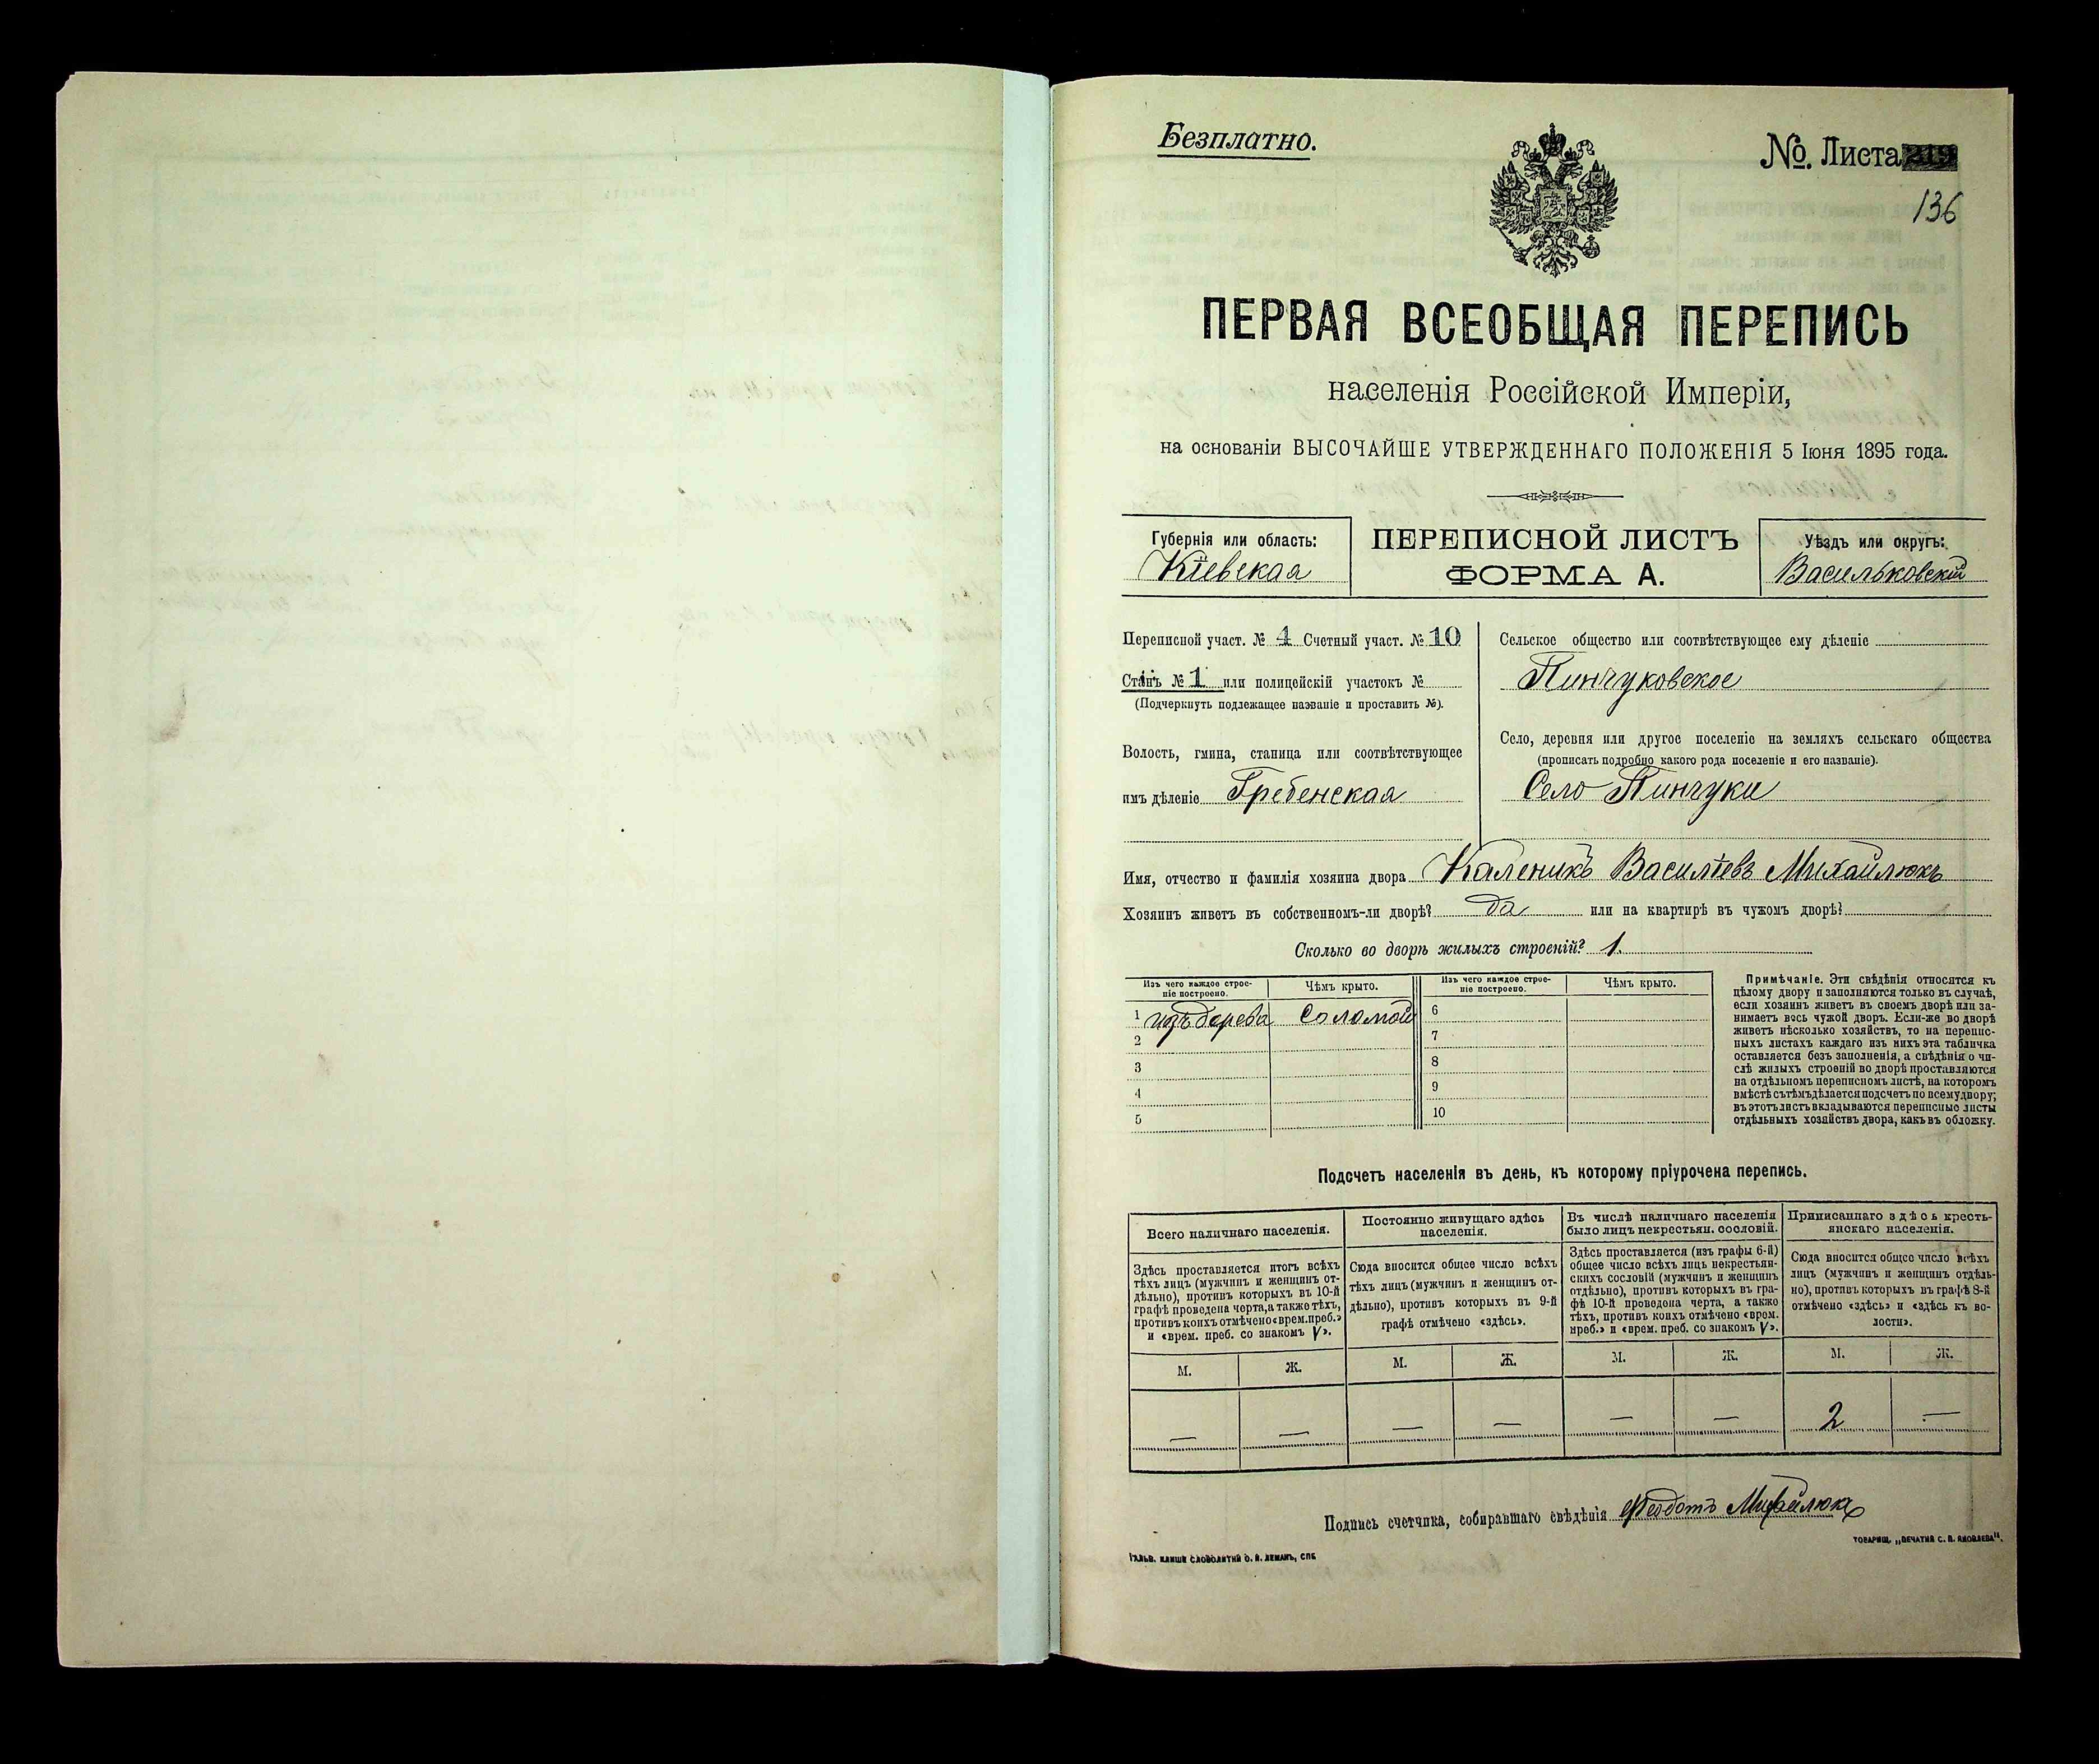 Безплатно.
№. Листа
136
ПЕРВАЯ ВСЕОБЩАЯ ПЕРЕПИСЬ
населенія Россійской Имперіи,
на основаніи ВЫСОЧАЙШЕ УТВЕРЖДЕННАГО ПОЛОЖЕНІЯ 5 Іюня 1895 года.
Губернія или область:
Кіевская
ПЕРЕПИСНОЙ ЛИСТЪ
ФОРМА А.
Уѣздъ или округъ:
Васильковскій
Переписной участ. № 4 Счетный участ. № 10
Станъ № 1 или полицейскій участокъ №
(Подчеркнуть подлежащее названіе и проставить №).
Волость, гмина, станица или соотвѣтствующее
имъ дѣленіе Гребенская
Сельское общество или соотвѣтствующее ему дѣленіе
Пинчуковское
Село, деревня или другое поселеніе на земляхъ сельскаго общества
(прописать подробно какого рода поселеніе и его названіе).
Село Пинчуки
Имя, отчество и фамилія хозяина двора Каленикъ Василіевъ Михайлюкъ
Хозяинъ живетъ въ собственномъ-ли дворѣ? да или на квартирѣ въ чужомъ дворѣ?
Сколько во дворѣ жилыхъ строеній? 1.
Изъ чего каждое строе-
ніе построено.
Чѣмъ крыто.
Изъ чего каждое строе-
ніе построено.
Чѣмъ крыто.
1 изъ дерева соломой 6
2 7
3 8
4 9
5 10
Примѣчаніе. Эти свѣдѣнія относятся къ
цѣлому двору и заполняются только въ случаѣ,
если хозяинъ живетъ въ своемъ дворѣ или за-
нимаетъ весь чужой дворъ. Если-же во дворѣ
живетъ нѣсколько хозяйствъ, то на перепис-
ныхъ листахъ каждаго изъ нихъ эта табличка
оставляется безъ заполненія, а свѣдѣнія о чи-
слѣ жилыхъ строеній во дворѣ проставляются
на отдѣльномъ переписномъ листѣ, на которомъ
вмѣстѣ съ тѣмъ дѣлается подсчетъ по всему двору;
въ этотъ листъ вкладываются переписные листы
отдѣльныхъ хозяйствъ двора, какъ въ обложку.
Подсчетъ населенія въ день, къ которому пріурочена перепись.
Всего наличнаго населенія.
Здѣсь проставляется итогъ всѣхъ
тѣхъ лицъ (мужчинъ и женщинъ от-
дѣльно), противъ которыхъ въ 10-й
графѣ проведена черта, а также тѣхъ,
противъ коихъ отмѣчено «врем. преб.»
и «врем. преб. со знакомъ V».
Постоянно живущаго здѣсь
населенія.
Сюда вносится общее число всѣхъ
тѣхъ лицъ (мужчинъ и женщинъ от-
дѣльно), противъ которыхъ въ 9-й
графѣ отмѣчено «здѣсь».
Въ числѣ наличнаго населенія
было лицъ некрестьян. сословій.
Здѣсь проставляется (изъ графы 6-й)
общее число всѣхъ лицъ некрестьян-
скихъ сословій (мужчинъ и женщинъ
отдѣльно), противъ которыхъ въ гра-
фѣ 10-й проведена черта, а также
тѣхъ, противъ коихъ отмѣчено «врем.
преб.» и «врем. преб. со знакомъ V».
Приписаннаго здѣсь кресть-
янскаго населенія.
Сюда вносится общее число всѣхъ
лицъ (мужчинъ и женщинъ отдѣль-
но), противъ которыхъ въ графѣ 8-й
отмѣчено «здѣсь» и «здѣсь къ во-
лости».
М. Ж. М. Ж. М. Ж. М. Ж.
— — — — — — 2 —
Подпись счетчика, собиравшаго свѣдѣнія Ѳеодотъ Михайлюкъ
Гальв. клише словолитни О. И. Леманъ, СПБ
ТОВАРИЩ. „ПЕЧАТНЯ С. П. ЯКОВЛЕВА".